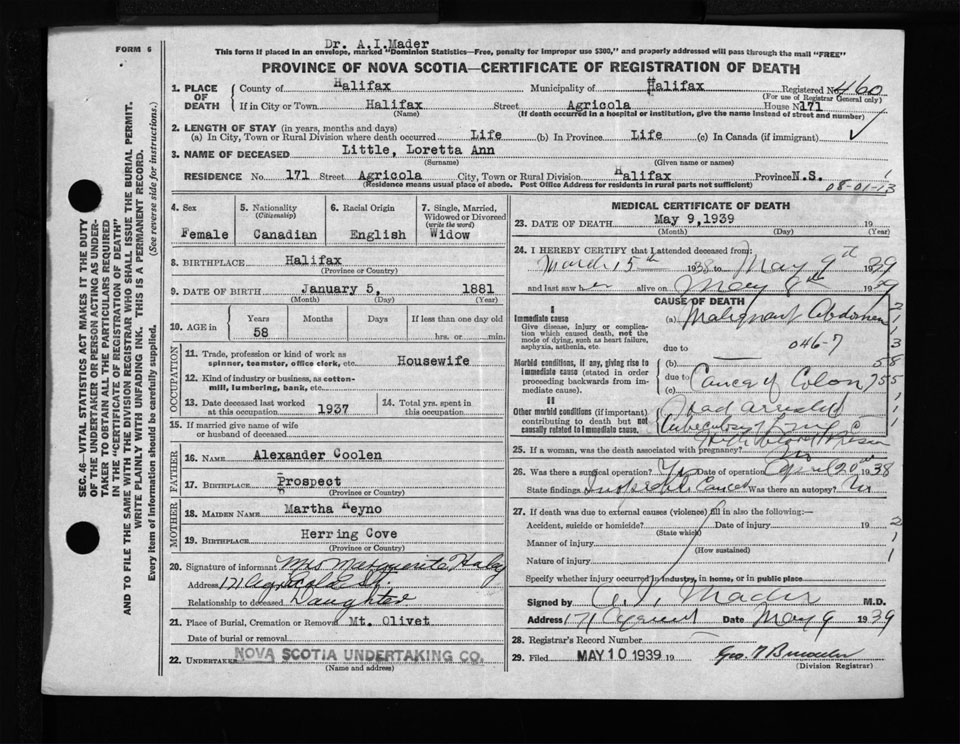 Dr. A.I.Mader
FORM 6
This form if placed in an envelope, marked "Dominion Statistics—Free, penalty for improper use $300," and properly addressed will pass through the mail "FREE"
PROVINCE OF NOVA SCOTIA—CERTIFICATE OF REGISTRATION OF DEATH
1. PLACE OF DEATH County of Halifax Municipality of Halifax Registered No. 460
(For use of Registrar General only)
If in City or Town Halifax Street Agricola House No. 171
(Name) (If death occurred in a hospital or institution, give the name instead of street and number)
2. LENGTH OF STAY (in years, months and days)
(a) In City, Town or Rural Division where death occurred Life (b) In Province Life (c) In Canada (if immigrant)
3. NAME OF DECEASED Little, Loretta Ann
(Surname) (Given name or names)
RESIDENCE No. 171 Street Agricola City, Town or Rural Division Halifax Province N.S.
(Residence means usual place of abode. Post Office Address for residents in rural parts not sufficient)
08-01-13
SEC. 46—VITAL STATISTICS ACT MAKES IT THE DUTY
OF THE UNDERTAKER OR PERSON ACTING AS UNDER-
TAKER TO OBTAIN ALL THE PARTICULARS REQUIRED
IN THE "CERTIFICATE OF REGISTRATION OF DEATH"
AND TO FILE THE SAME WITH THE DIVISION REGISTRAR WHO SHALL ISSUE THE BURIAL PERMIT.
WRITE PLAINLY WITH UNFADING INK. THIS IS A PERMANENT RECORD.
Every item of information should be carefully supplied. (See reverse side for instructions.)
4. Sex Female
5. Nationality (Citizenship) Canadian
6. Racial Origin English
7. Single, Married, Widowed or Divorced (write the word) Widow
8. BIRTHPLACE Halifax
(Province or Country)
9. DATE OF BIRTH January 5, 1881
(Month) (Day) (Year)
10. AGE in Years 58 Months Days If less than one day old hrs. or min.
OCCUPATION
11. Trade, profession or kind of work as spinner, teamster, office clerk, etc. Housewife
12. Kind of industry or business, as cotton-mill, lumbering, bank, etc.
13. Date deceased last worked at this occupation 1937
14. Total yrs. spent in this occupation
15. If married give name of wife or husband of deceased
FATHER
16. NAME Alexander Coolen
17. BIRTHPLACE Prospect
(Province or Country)
MOTHER
18. MAIDEN NAME Martha Keyno
19. BIRTHPLACE Herring Cove
(Province or Country)
20. Signature of informant Mrs Marguerite
Address 171 Agricola St.
Relationship to deceased Daughter
21. Place of Burial, Cremation or Removal Mt. Olivet
Date of burial or removal
22. UNDERTAKER NOVA SCOTIA UNDERTAKING CO.
(Name and address)
MEDICAL CERTIFICATE OF DEATH
23. DATE OF DEATH May 9,1939 19
(Month) (Day) (Year)
24. I HEREBY CERTIFY that I attended deceased from:
March 15th 1938 to May 9th 1939
and last saw her alive on May 8th 1939
CAUSE OF DEATH
I
Immediate cause (a) Malignant Abdomen
Give disease, injury or complication which caused death, not the mode of dying, such as heart failure, asphyxia, asthenia, etc.
due to 046-7
Morbid conditions, if any, giving rise to immediate cause (stated in order proceeding backwards from immediate cause).
(b)
due to Cancer of Colon
(c)
II
Other morbid conditions (if important) contributing to death but not causally related to immediate cause.
Had arrested
Tuberculosis
25. If a woman, was the death associated with pregnancy? No
26. Was there a surgical operation? Yes Date of operation April 20th 1938
State findings Cancer Was there an autopsy? No
27. If death was due to external causes (violence) fill in also the following:—
Accident, suicide or homicide? Date of injury 19
(State which)
Manner of injury
(How sustained)
Nature of injury
Specify whether injury occurred in industry, in home, or in public place
Signed by A. I. Mader M.D.
Address Date May 9 1939
28. Registrar's Record Number
29. Filed MAY 10 1939 19
(Division Registrar)